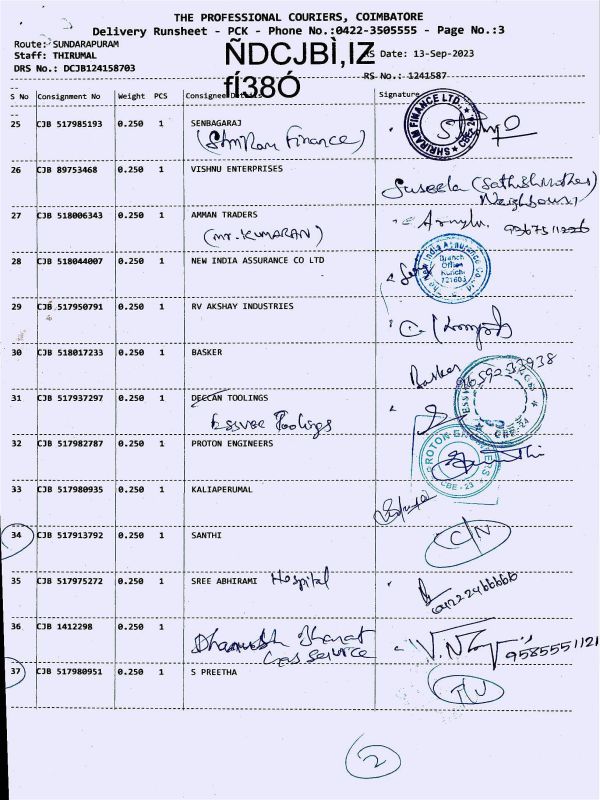 THE PROFESSIONAL COURIERS, COIMBATORE
Delivery Runsheet - PCK - Phone No.:0422-3505555 - Page No.:3
Route: SUNDARAPURAM
Staff: THIRUMAL
ÑDCJBÌ,IZ
RS Date: 13-Sep-2023
DRS No.: DCJB124158703
fÍ38Ó
RS No.: 1241587
S No Consignment No Weight PCS Consignee Details Signature
25 CJB 517985193 0.250 1 SENBAGARAJ
(Shriram Finance)
SHRIRAM FINANCE LTD. CBE
26 CJB 89753468 0.250 1 VISHNU ENTERPRISES
Suseela (Sathish Mother)
Neighbour
27 CJB 518006343 0.250 1 AMMAN TRADERS
(Mr. KUMARAN)
28 CJB 518044007 0.250 1 NEW INDIA ASSURANCE CO LTD
The New India Assurance Co Ltd
Branch
Office
Kurichi
721603
29 CJB 517950791 0.250 1 RV AKSHAY INDUSTRIES
30 CJB 518017233 0.250 1 BASKER
Basker 9659233938
31 CJB 517937297 0.250 1 DECCAN TOOLINGS
Essvee Toolings
CBE-24
32 CJB 517982787 0.250 1 PROTON ENGINEERS
PROTON ENGINEERS
CBE-23
33 CJB 517980935 0.250 1 KALIAPERUMAL
34 CJB 517913792 0.250 1 SANTHI
C/N
35 CJB 517975272 0.250 1 SREE ABHIRAMI Hospital
36 CJB 1412298 0.250 1
Dhanubh Bharat
Gas Service
9585551121
37 CJB 517980951 0.250 1 S PREETHA
2